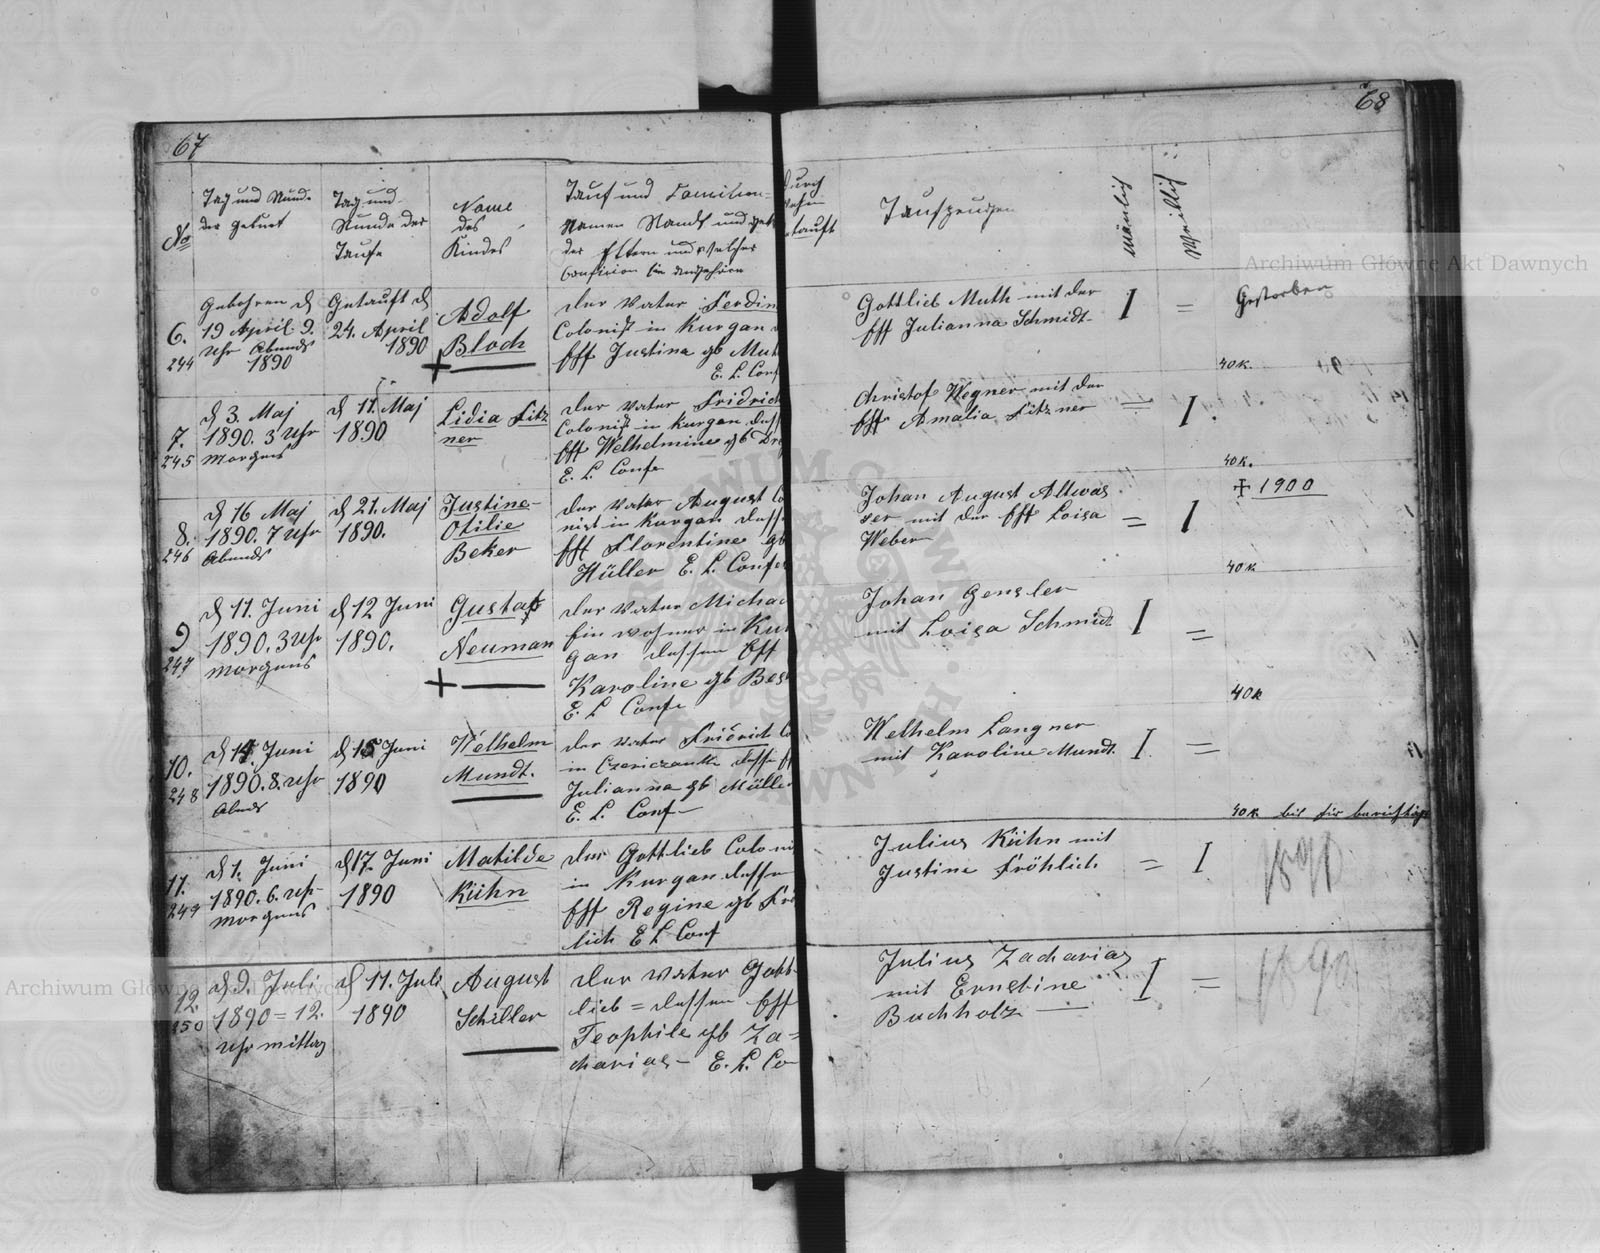 67
68
No
Tag und Stunde
der Geburt
Tag und
Stunde der
Taufe
Name
des
Kindes
Tauf und Familien=
Namen Stand und
der Eltern und welcher
Confission sie angehören
durch
getauft
Taufzeugen
männlich
Weiblich
6.
244
Gebohren d
19 April 9.
Uhr Abends
1890
Getauft d
24. April
1890
Adolf
Bloch
der Vater Ferdin
Colonist in Kurgan
Eff Justina gb Mut
E. L. Conf
Gottlieb Muth mit der
Eff Julianna Schmidt
I
=
Gestorben
40 K.
7.
245
d 3. Maj
1890. 3 Uhr
Morgens
d 11. Maj
1890
Lidia Fitz
ner
der Vater Fridrich
Colonist in Kurgan dess
Eff Welhelmine gb
E. L. Confe
Christof Wegner mit der
Eff Amalia Fitzner
=
I.
40 K.
8.
246
d 16 Maj
1890. 7 Uhr
Abends
d 21. Maj
1890.
Justine-
Otilie
Beker
der Vater August Co
nist in Kurgan dess
Eff Florentine gb
Hüller E. L. Confe
Johan August Altwas
ser mit der Eff Loisa
Weber
=
I
+ 1900
40 K
9
247
d 11. Juni
1890. 3 Uhr
Morgens
d 12 Juni
1890.
Gustaf
Neuman
der Vater Micha
Einwohner in Kur
gan dessen Eff
Karoline gb Bes
E. L Confe
Johan Gensler
mit Loisa Schmidt
I
=
40 K
10.
248
d 14. Juni
1890. 8. Uhr
Abends
d 15 Juni
1890
Welhelm
Mundt.
der Vater Fridrich Co
in dessen Eff
Julianna gb Müller
E. L. Conf
Welhelm Langner
mit Karoline Mundt.
I.
=
40 K bis hier berichtigt
11.
249
d 1. Juni
1890. 6. Uhr
Morgens
d 17. Juni
1890
Matilde
Kühn
der Gottlieb Coloni
in Kurgan dessen
Eff Regine gb Frö
lich E L Conf
Julius Kühn mit
Justine Fröhlich
=
I
1890
12.
250
d 9. Juli
1890 = 12.
Uhr mittag
d 11. Juli
1890
August
Schiller
der Vater Gott-
lieb = dessen Eff
Teophile gb Za=
charias - E. L. Co
Julius Zacharias
mit Ernstine
Buchholz
I
=
1890
Archiwum Główne Akt Dawnych
Archiwum Główne Akt Dawnych